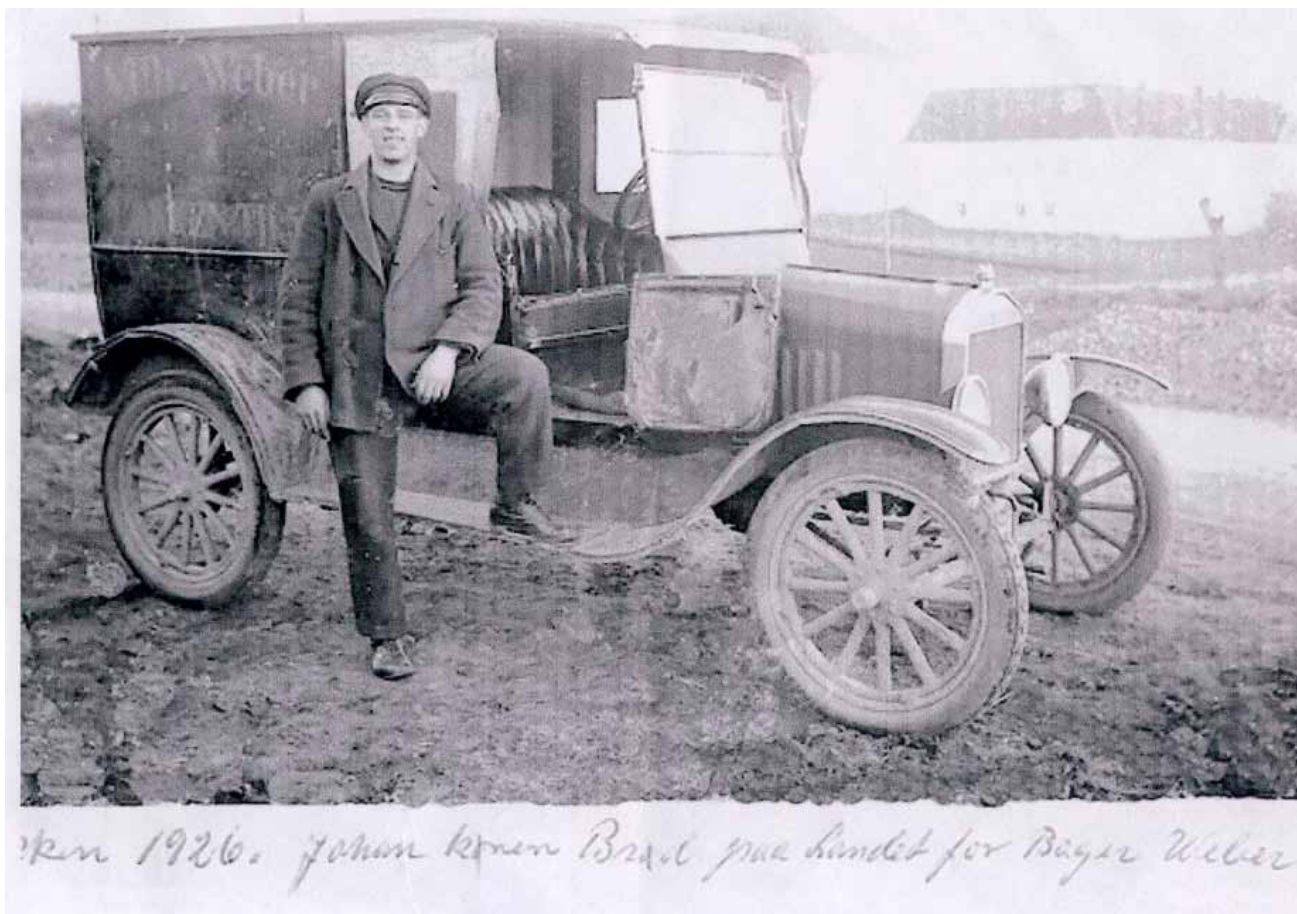 Weber
1926. Johan kører Brød paa Landet for Bager Weber